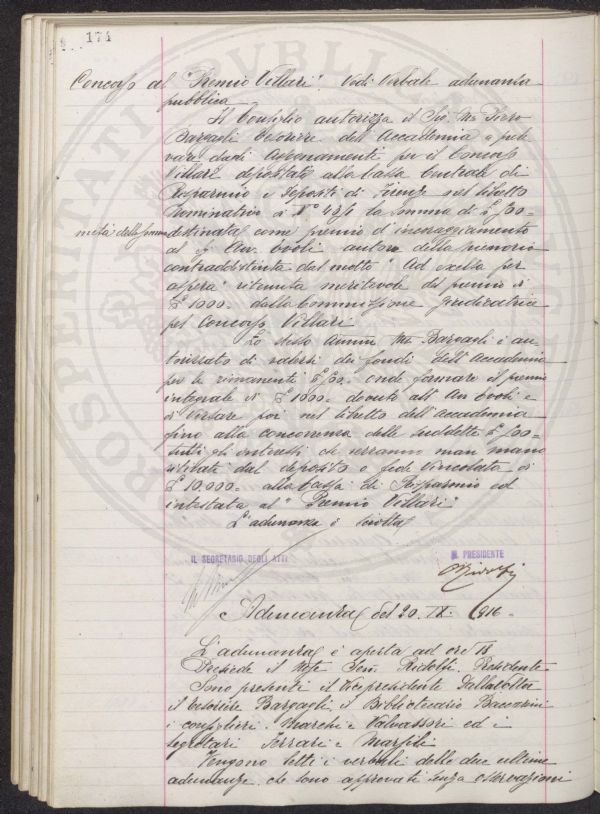 174
Concorso al "Premio Villari" Vedi Verbale adunanza
pubblica
Il Consiglio autorizza il Sig. Mse Piero
Bargagli Tesoriere dell'Accademia a prele
vare dagli assegnamenti per il Concorso
Villari depositati alla Cassa Centrale di
Risparmio e Depositi di Firenze nel libretto
nominativo di No la somma di £ 500=
metà della somma destinata come premio d'incoraggiamento
al autore della memoria
contraddistinta dal motto "Ad excelsa per
aspera" ritenuta meritevole del premio di
£ 1000 dalla Commissione giudicatrice
pel Concorso Villari
Lo stesso Mse Bargagli è au
torizzato di valersi dei fondi dell'Accademia
per le rimanenti £ 500= onde formare il premio
integrale di £ 1000= dovuto all' e
di versare poi nel libretto dell'accademia
fino alla concorrenza delle suddette £ 500=
tutti gli interessi che verranno man mano
ritirati dal deposito a fede vincolata di
£ 10.000= alla Cassa di Risparmio ed
intestata al "Premio Villari"
L'adunanza è sciolta
IL SEGRETARIO DEGLI ATTI
IL PRESIDENTE
Ridolfi
Adunanza del 20. IX. 1916=
L'adunanza è aperta ad ore 15
Presiede il Mse Sen. Ridolfi, Presidente
Sono presenti il Vicepresidente Dallavolta
il tesoriere Bargagli, il Bibliotecario Baccarini
i consiglieri Marchi e Valvassori ed i
segretari Ferrari e Marsili
Vengono letti i verbali delle due ultime
adunanze che sono approvati senza osservazioni